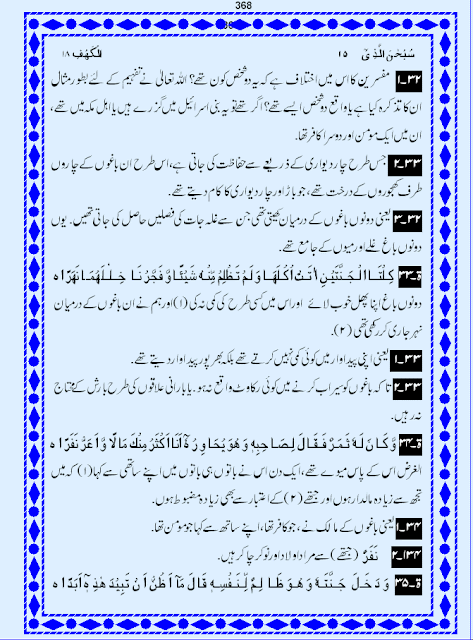 368
سُبْحٰنَ الَّذِیْٓ ۱۵ الْكَهْف ۱۸
۳۲۔۱ مفسرین کا اس میں اختلاف ہے کہ یہ دو شخص کون تھے؟ اللہ تعالیٰ نے تفہیم کے لئے بطور مثال
ان کا تذکرہ کیا ہے یا واقعی دو شخص ایسے تھے؟ اگر تھے تو یہ بنی اسرائیل میں گزرے ہیں یا اہل مکہ میں تھے،
ان میں ایک مومن اور دوسرا کافر تھا۔
۳۲۔۲ جس طرح چار دیواری کے ذریعے سے حفاظت کی جاتی ہے، اس طرح ان باغوں کے چاروں
طرف کھجوروں کے درخت تھے، جو باڑ اور چار دیواری کا کام دیتے تھے۔
۳۲۔۳ یعنی دونوں باغوں کے درمیان کھیتی تھی جن سے غلہ جات کی فصلیں حاصل کی جاتی تھیں۔ یوں
دونوں باغ غلے اور میوں کے جامع تھے۔
ۃ۔۳۳ كِلْتَا الْجَنَّتَيْنِ اٰتَتْ اُكُلَهَا وَلَمْ تَظْلِمْ مِّنْهُ شَيْئًا وَّفَجَّرْنَا خِلٰلَهُمَا نَهَرًا ہ
دونوں باغ اپنا پھل خوب لائے اور اس میں کسی طرح کی کمی نہ کی (۱) اور ہم نے ان باغوں کے درمیان
نہر جاری کر رکھی تھی (۲)۔
۳۳۔۱ یعنی اپنی پیداوار میں کوئی کمی نہیں کرتے تھے بلکہ بھرپور پیداوار دیتے تھے۔
۳۳۔۲ تاکہ باغوں کو سیراب کرنے میں کوئی رکاوٹ واقع نہ ہو۔ یا بارانی علاقوں کی طرح بارش کے محتاج
نہ رہیں۔
ۃ۔۳۴ وَّكَانَ لَهٗ ثَمَرٌ فَقَالَ لِصَاحِبِهٖ وَهُوَ يُحَاوِرُهٗٓ اَنَا اَكْثَرُ مِنْكَ مَالًا وَّاَعَزُّ نَفَرًا ہ
الغرض اس کے پاس میوے تھے، ایک دن اس نے باتوں ہی باتوں میں اپنے ساتھی سے کہا (۱) کہ میں
تجھ سے زیادہ مالدار ہوں اور جتھے (۲) کے اعتبار سے بھی زیادہ مضبوط ہوں۔
۳۴۔۱ یعنی باغوں کے مالک نے، جو کافر تھا، اپنے ساتھ سے کہا جو مومن تھا۔
۳۴۔۲ نَفَرٌ (جتھے) سے مراد اولاد اور نوکر چاکر ہیں۔
ۃ۔۳۵ وَدَخَلَ جَنَّتَهٗ وَهُوَ ظَالِمٌ لِّنَفْسِهٖ قَالَ مَآ اَظُنُّ اَنْ تَبِيْدَ هٰذِهٖٓ اَبَدًا ہ